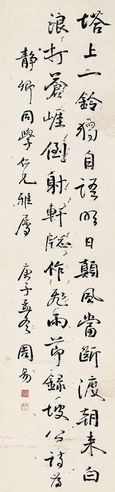 塔上一鈴獨自語明日顛風當斷渡朝來白
浪打蒼崖倒射軒窗作飛雨節錄坡公詩為
靜卿同學仁兄雅屬 庚子孟冬 周